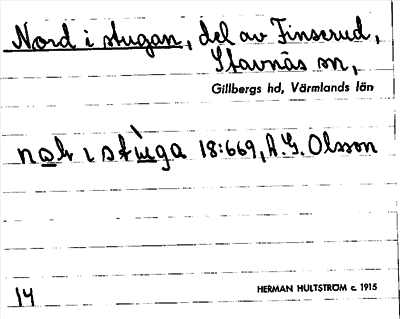 Nord i stugan, del av Finserud,
Stavnäs sn,
Gillbergs hd, Värmlands län
i stùga 18:669, A.G. Olsson
14 HERMAN HULTSTRÖM c. 1915